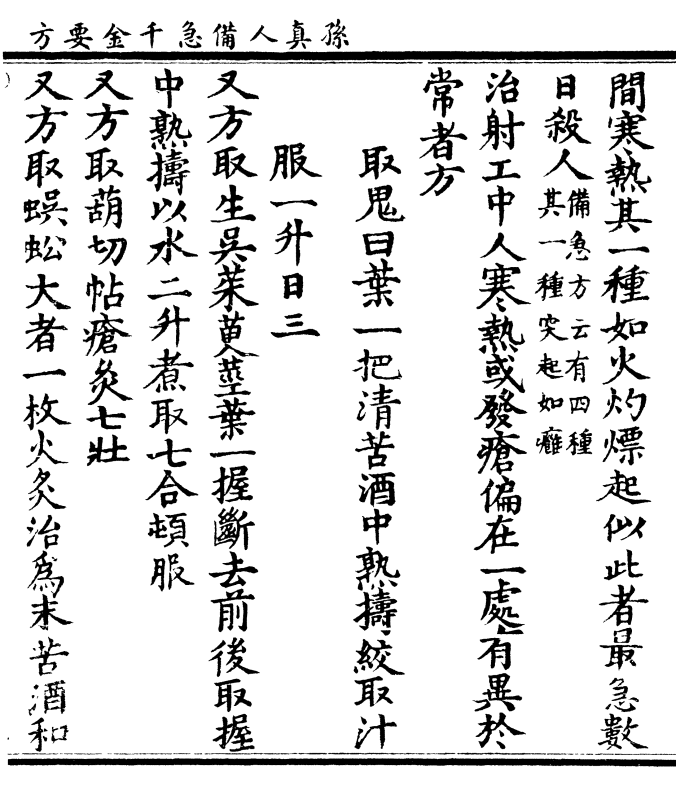 孫真人備急千金要方
間寒熱其一種如火灼熛起似此者最急數
日殺人備急方云有四種其一種突起如癰
治射工中人寒熱或發瘡偏在一處有異於
常者方
取鬼臼葉一把清苦酒中熟擣絞取汁
服一升日三
又方取生吳茱萸莖葉一握斷去前後取握
中熟擣以水二升煮取七合頓服
又方取葫切帖瘡灸七壯
又方取蜈蚣大者一枚火炙治爲末苦酒和